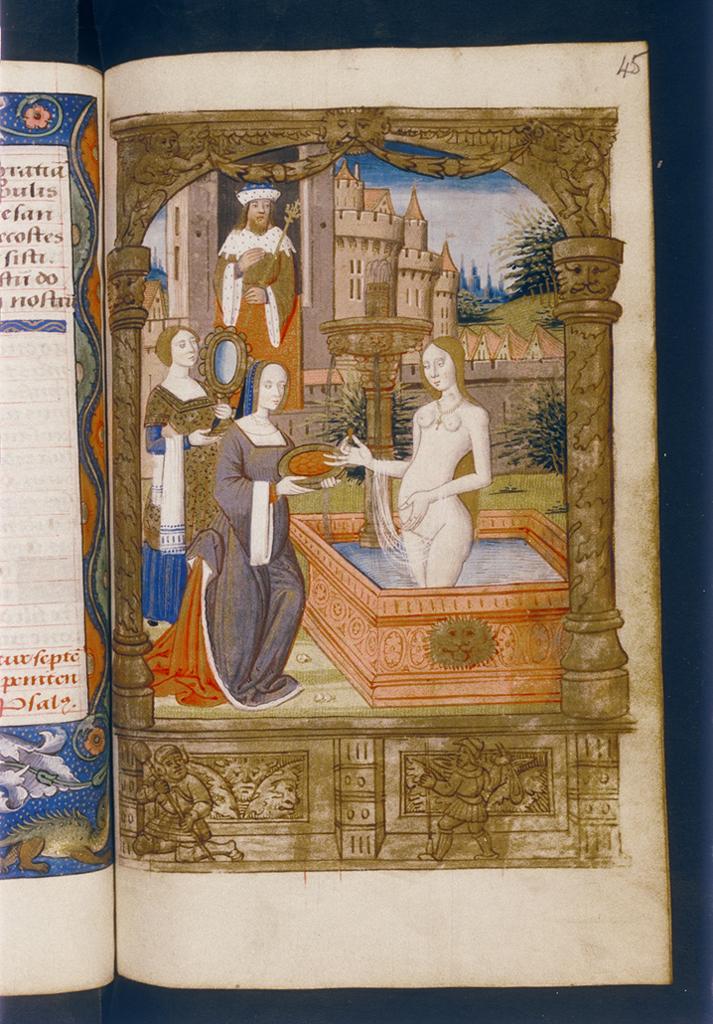 45
oratia
bulis
esan
ecostes
sisti.
stri do
nostri
tur septē
peniten
psalꝫ.